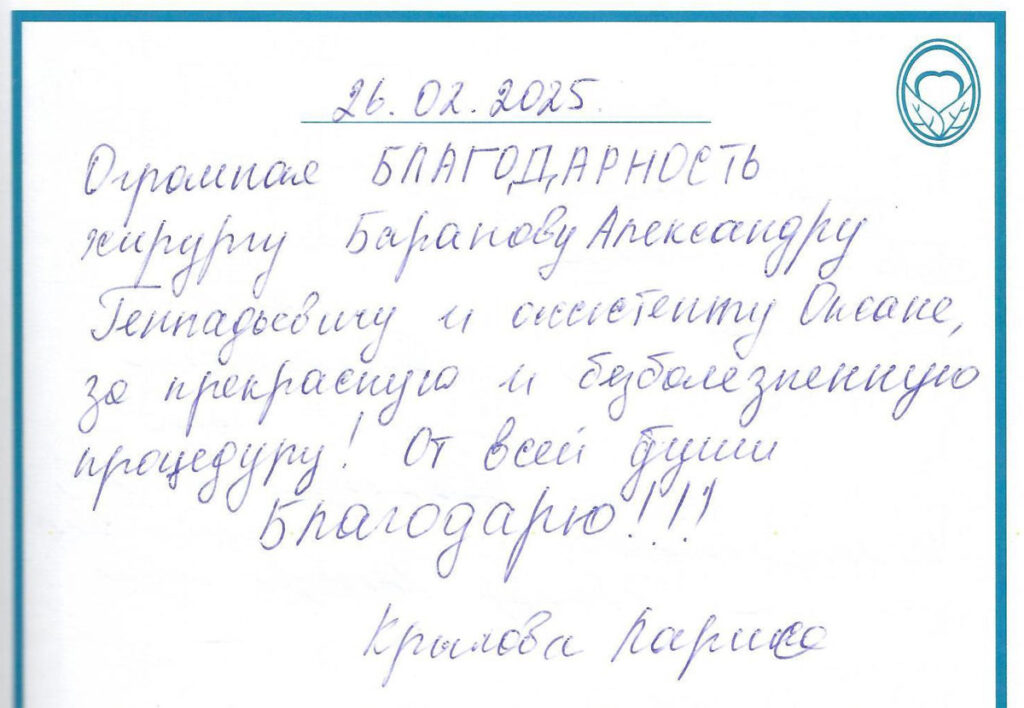 26.02.2025.
Огромная БЛАГОДАРНОСТЬ
хирургу Баранову Александру
Геннадьевичу и ассистенту Оксане,
за прекрасную и безболезненную
процедуру! От всей души
Благодарю!!!
Крылова Лариса